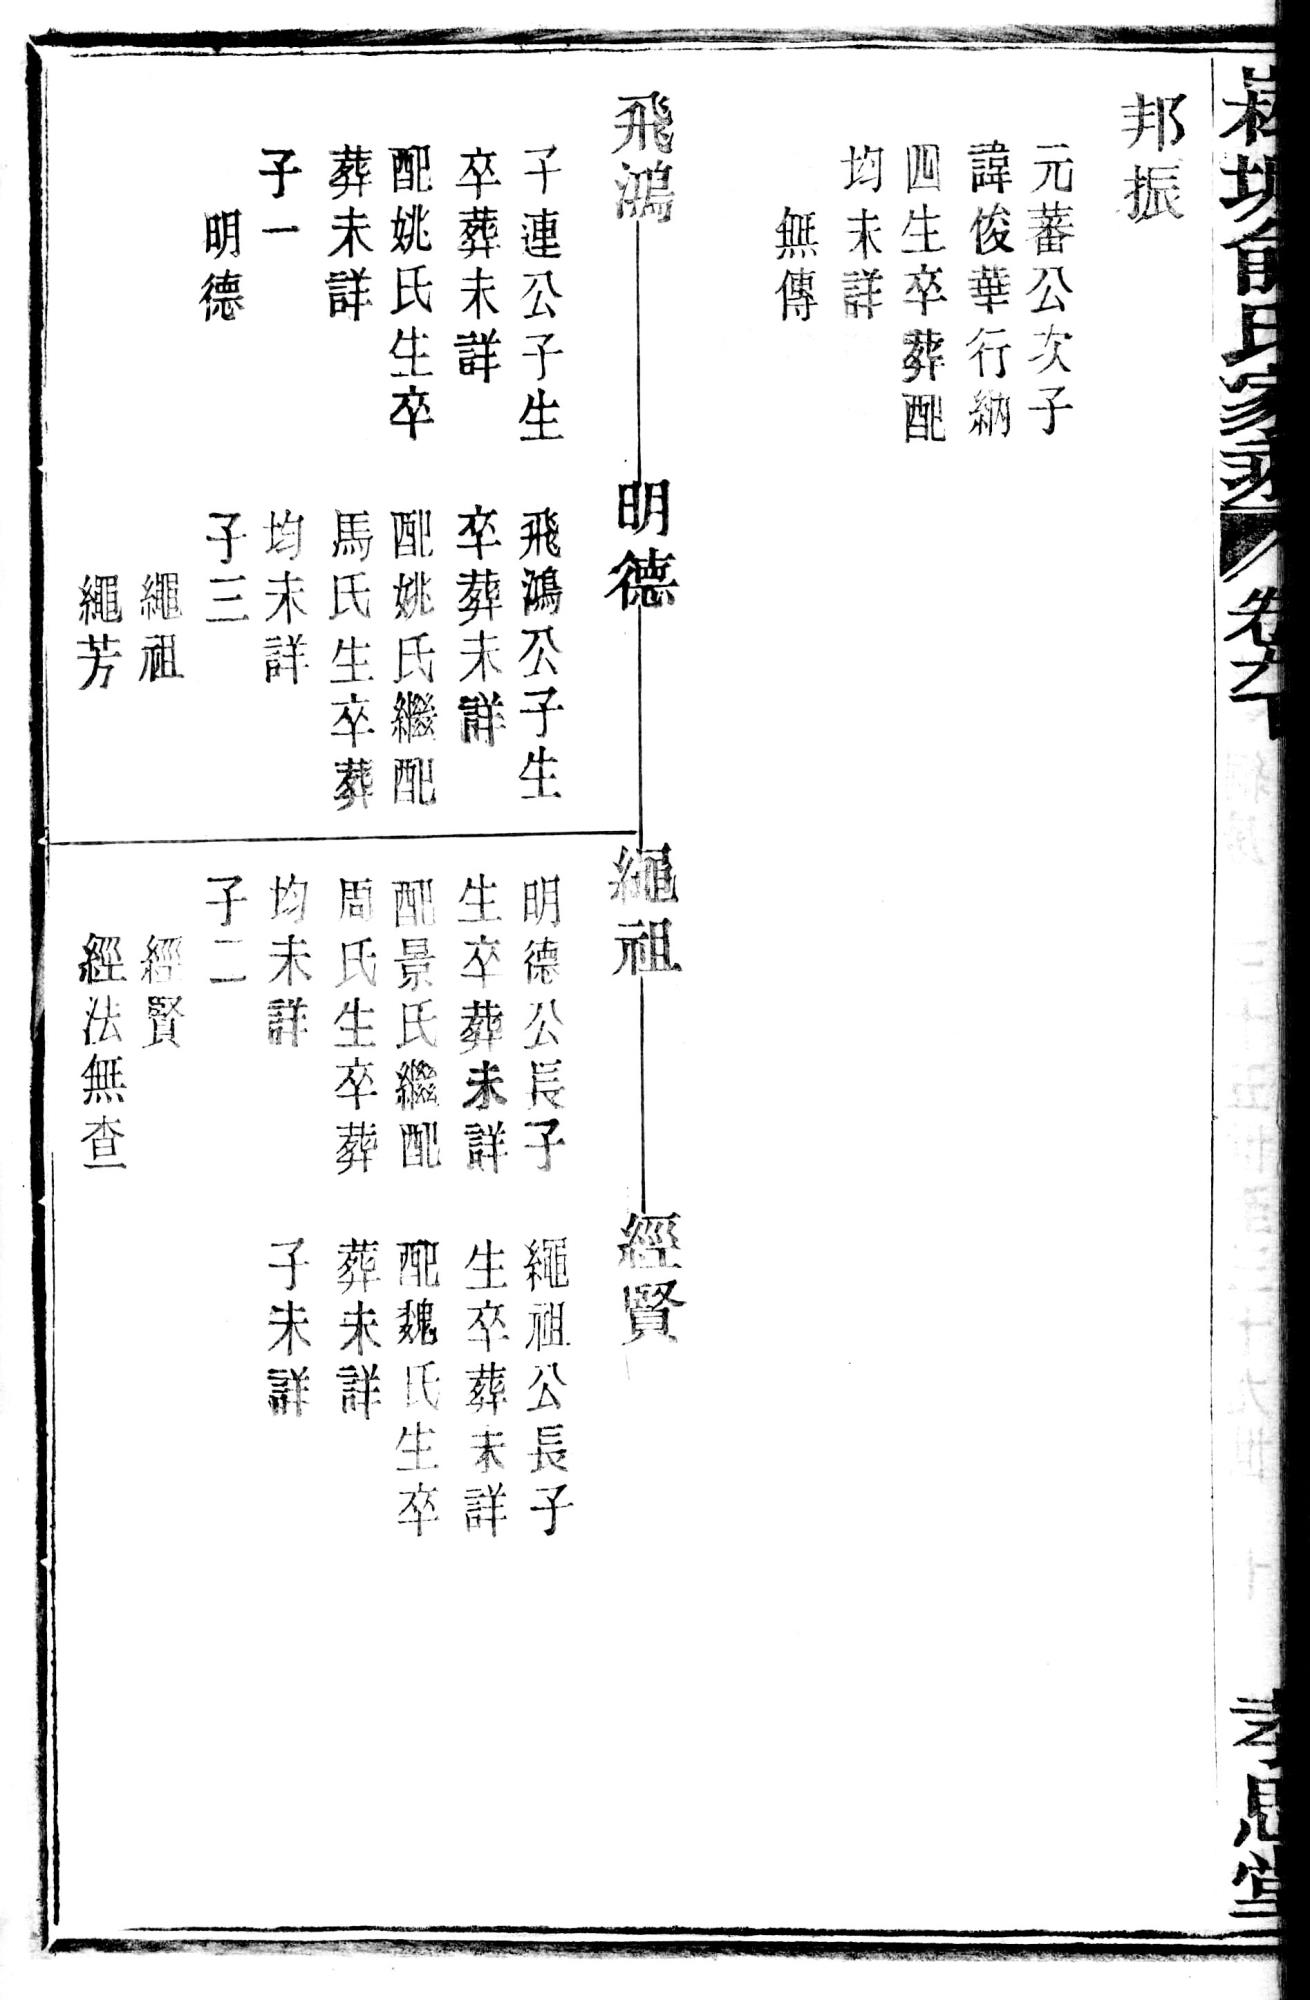 俞氏家乘
卷六下
孝思堂
邦振
元蕃公次子
諱俊華行納
四生卒葬配
均未詳
無傳
飛鴻
子連公子生
卒葬未詳
配姚氏生卒
葬未詳
子一
明德
明德
飛鴻公子生
卒葬未詳
配姚氏繼配
馬氏生卒葬
均未詳
子三
繩祖
繩芳
繩祖
明德公長子
生卒葬未詳
配景氏繼配
周氏生卒葬
均未詳
子二
經賢
經法無查
經賢
繩祖公長子
生卒葬未詳
配魏氏生卒
葬未詳
子未詳